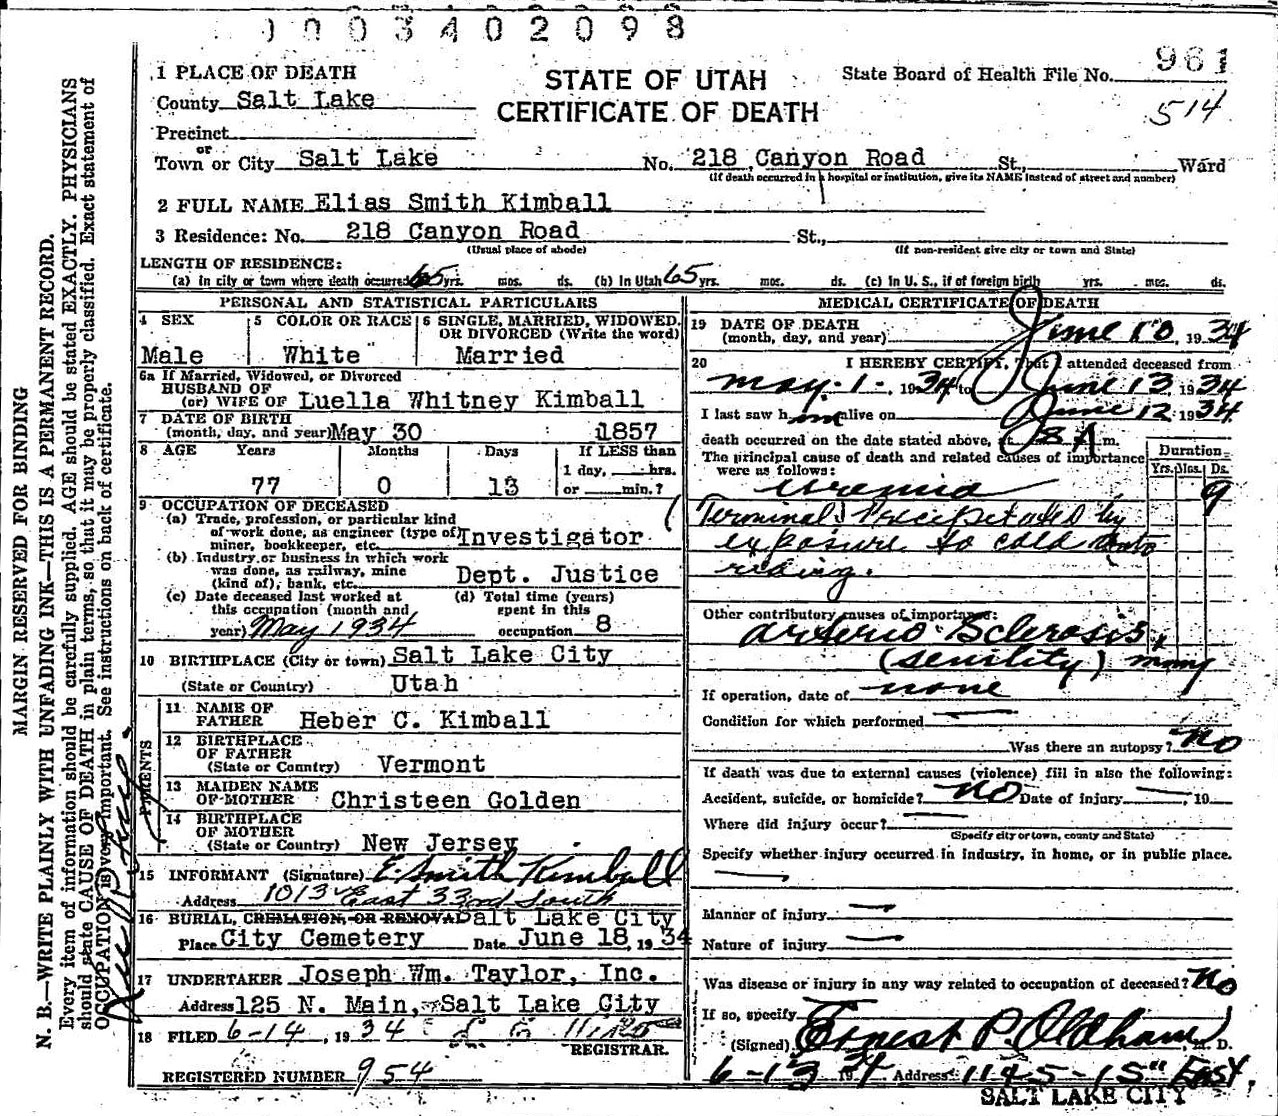 1003402098
961
1 PLACE OF DEATH
STATE OF UTAH
State Board of Health File No.
County Salt Lake
CERTIFICATE OF DEATH
514
Precinct
or
Town or City Salt Lake No. 218 Canyon Road St., Ward
(If death occurred in a hospital or institution, give its NAME instead of street and number)
2 FULL NAME Elias Smith Kimball
3 Residence: No. 218 Canyon Road St.,
(Usual place of abode) (If non-resident give city or town and State)
LENGTH OF RESIDENCE:
(a) In city or town where death occurred 65 yrs. mos. ds. (b) In Utah 65 yrs. mos. ds. (c) In U. S., if of foreign birth yrs. mos. ds.
PERSONAL AND STATISTICAL PARTICULARS
4 SEX
Male
5 COLOR OR RACE
White
6 SINGLE, MARRIED, WIDOWED, OR DIVORCED (Write the word)
Married
6a If Married, Widowed, or Divorced
HUSBAND OF
(or) WIFE OF Luella Whitney Kimball
7 DATE OF BIRTH
(month, day, and year) May 30 1857
8 AGE Years Months Days If LESS than
1 day, hrs.
77 0 13 or min.?
9 OCCUPATION OF DECEASED
(a) Trade, profession, or particular kind
of work done, as engineer (type of)
miner, bookkeeper, etc. Investigator
(b) Industry or business in which work
was done, as railway, mine
(kind of); bank, etc. Dept. Justice
(c) Date deceased last worked at
this occupation (month and
year) May 1934
(d) Total time (years)
spent in this
occupation 8
10 BIRTHPLACE (City or town) Salt Lake City
(State or Country) Utah
PARENTS
11 NAME OF
FATHER Heber C. Kimball
12 BIRTHPLACE
OF FATHER
(State or Country) Vermont
13 MAIDEN NAME
OF MOTHER Christeen Golden
14 BIRTHPLACE
OF MOTHER
(State or Country) New Jersey
15 INFORMANT (Signature) E. Smith Kimball
Address 1013 East 33rd South
16 BURIAL, CREMATION, OR REMOVAL Salt Lake City
Place City Cemetery Date June 18, 1934
17 UNDERTAKER Joseph Wm. Taylor, Inc.
Address 125 N. Main, Salt Lake City
18 FILED 6-14, 1934
REGISTRAR.
REGISTERED NUMBER 954
MEDICAL CERTIFICATE OF DEATH
19 DATE OF DEATH
(month, day, and year) June 10, 1934
20 I HEREBY CERTIFY, That I attended deceased from
May 1-, 1934 to June 13, 1934
I last saw him alive on June 12, 1934
death occurred on the date stated above, at 8 A m.
The principal cause of death and related causes of importance
were as follows:
Duration
Yrs. Mos. Ds.
Uremia 9
Terminal Precipitated by
exposure to cold auto
riding.
Other contributory causes of importance:
Arterio Sclerosis,
(senility) many
If operation, date of none
Condition for which performed
Was there an autopsy? no
If death was due to external causes (violence) fill in also the following:
Accident, suicide, or homicide? no Date of injury , 19
Where did injury occur?
(Specify city or town, county and State)
Specify whether injury occurred in industry, in home, or in public place.
Manner of injury
Nature of injury
Was disease or injury in any way related to occupation of deceased? No
If so, specify
(Signed) Ernest P. Oldham, M. D.
6-13 1934 Address 1145-15" East,
SALT LAKE CITY
MARGIN RESERVED FOR BINDING
N. B.—WRITE PLAINLY WITH UNFADING INK—THIS IS A PERMANENT RECORD.
Every item of information should be carefully supplied. AGE should be stated EXACTLY. PHYSICIANS
should state CAUSE OF DEATH in plain terms, so that it may be properly classified. Exact statement of
OCCUPATION is very important. See instructions on back of certificate.